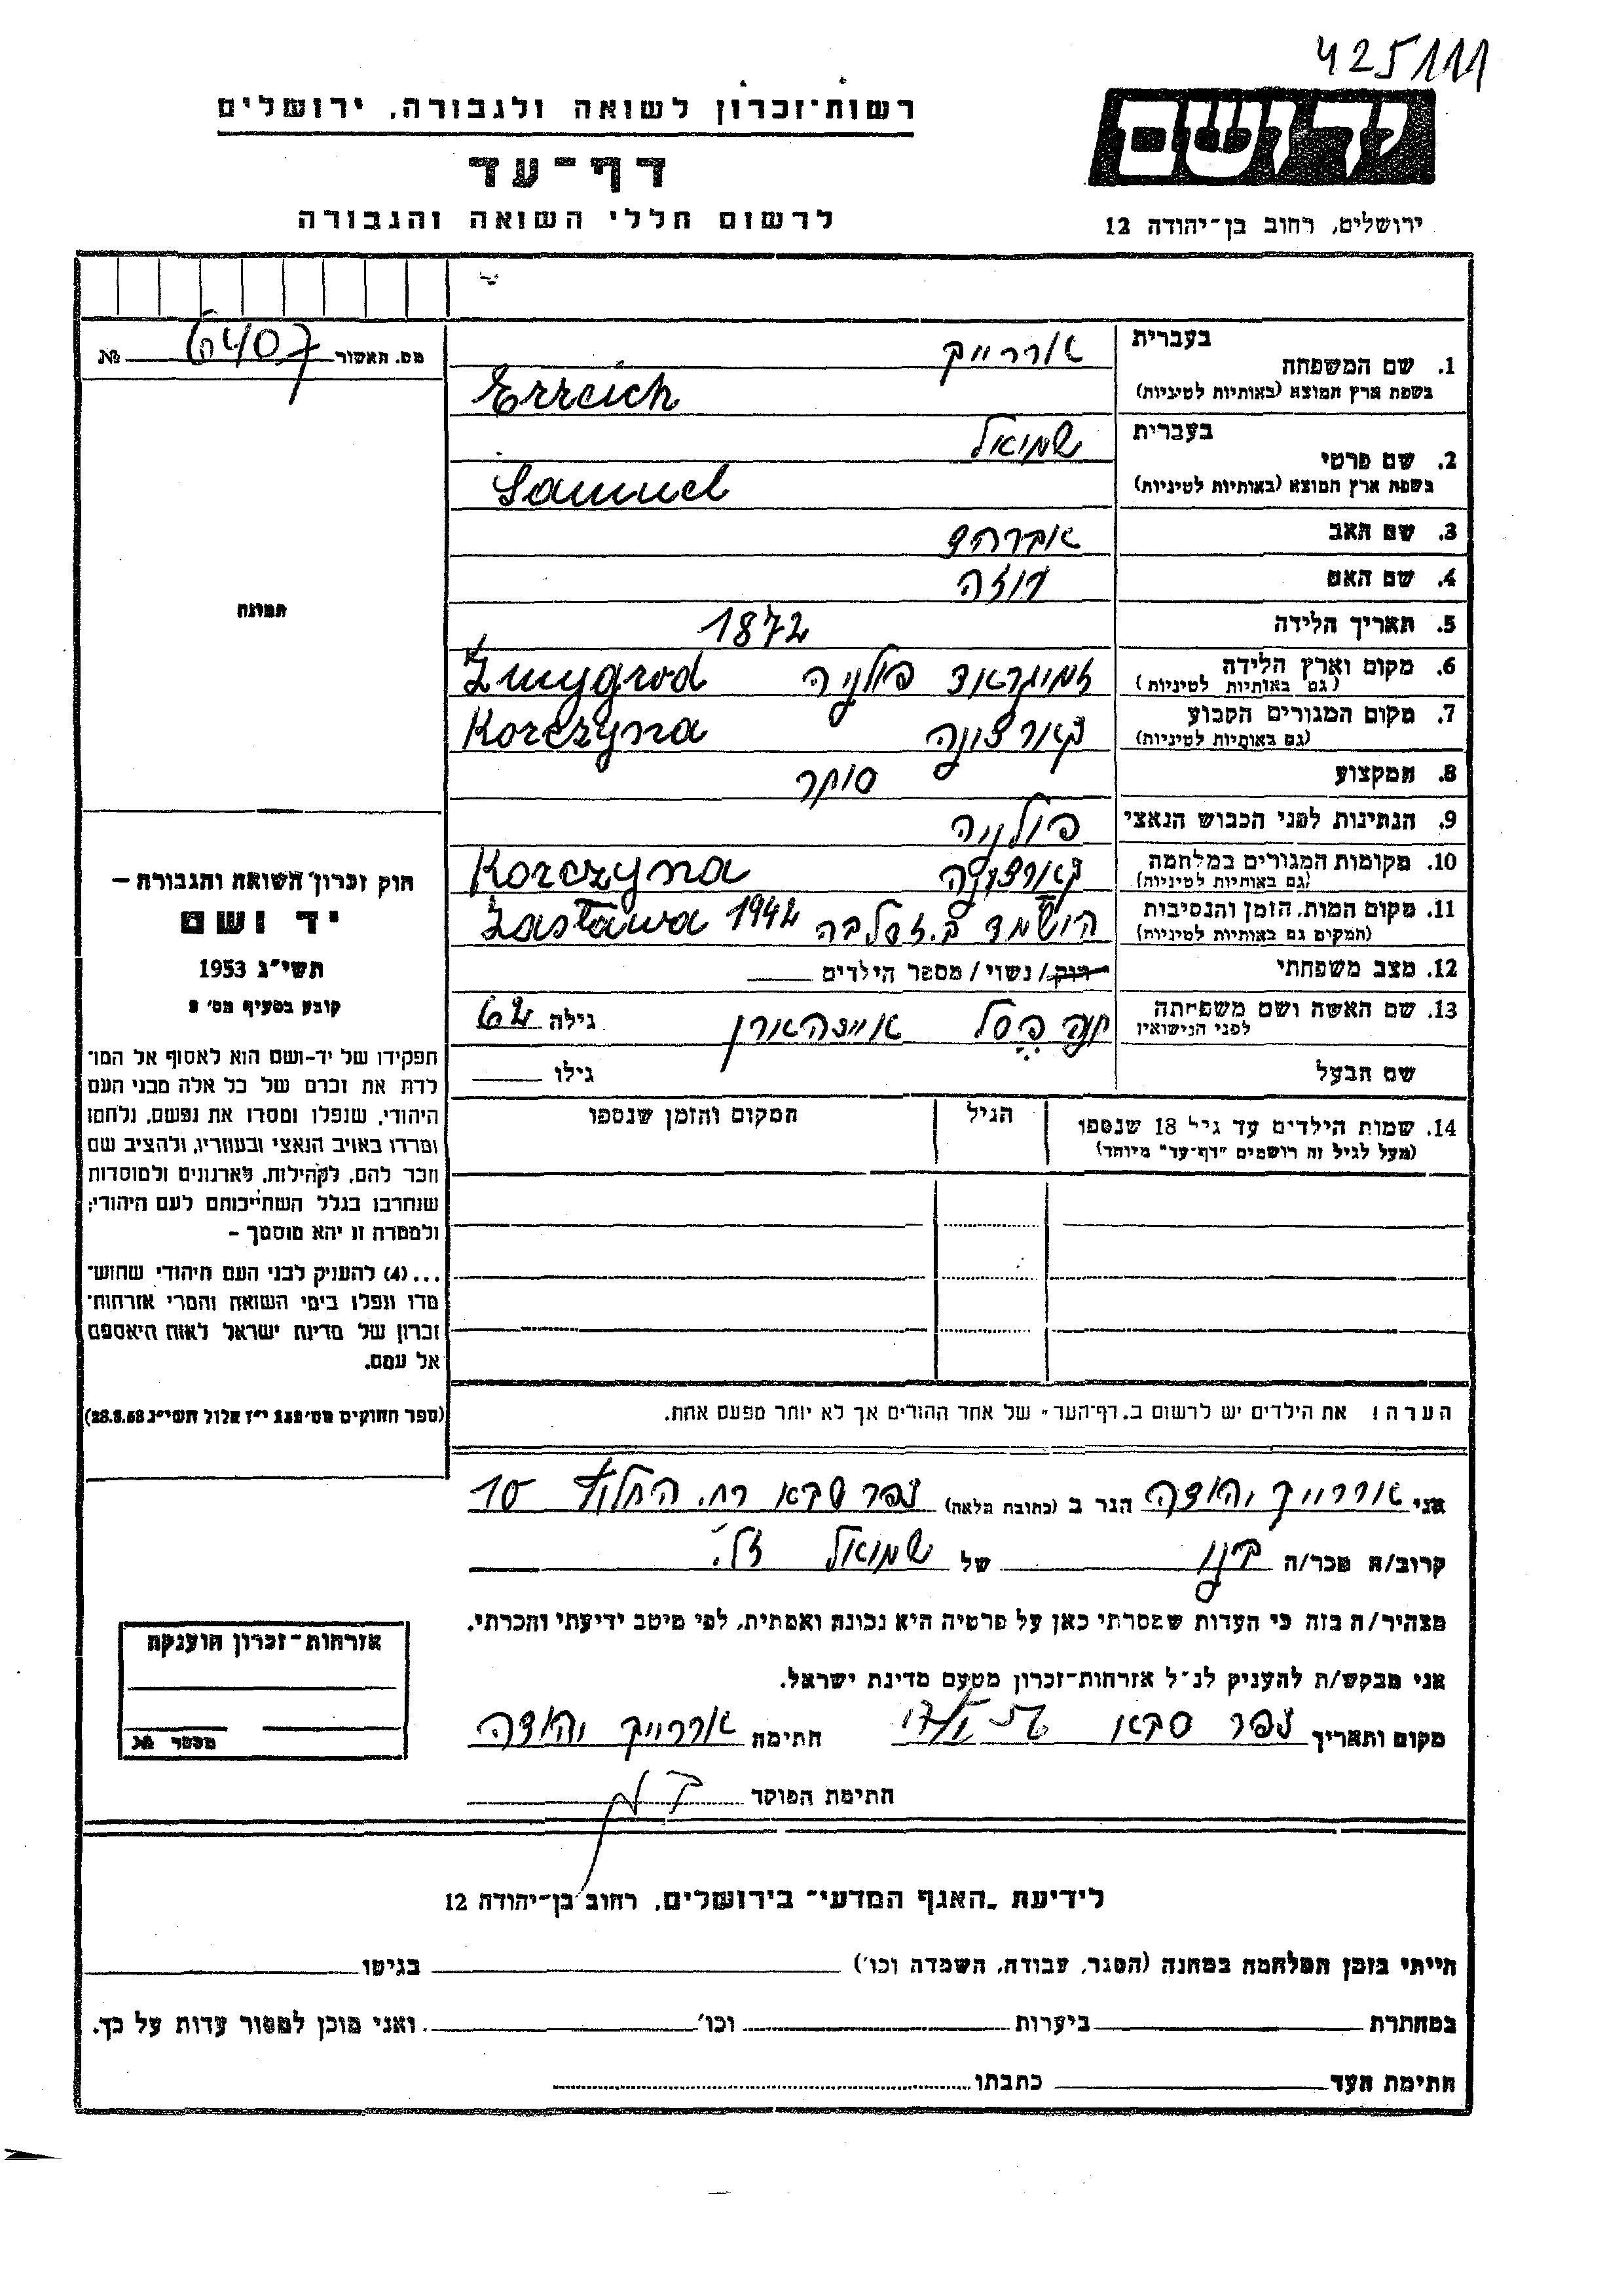 425111
יד ושם
ירושלים, רחוב בן-יהודה 12
רשות-זכרון לשואה ולגבורה, ירושלים
דף-עד
לרשום חללי השואה והגבורה
מס. האשור 6407 №
תמונה
חוק זכרון השואה והגבורה –
יד ושם
תשי"ג 1953
קובע בסעיף מס' 2
תפקידו של יד-ושם הוא לאסוף אל המו־
לדת את זכרם של כל אלה מבני העם
היהודי, שנפלו ומסרו את נפשם, נלחמו
ומרדו באויב הנאצי ובעוזריו, ולהציב שם
וזכר להם, לקהילות, לארגונים ולמוסדות
שנחרבו בגלל השתייכותם לעם היהודי;
ולמטרה זו יהא מוסמך –
...(4) להעניק לבני העם היהודי שהוש־
מדו ונפלו בימי השואה והמרי אזרחות־
זכרון של מדינת ישראל לאות היאספם
אל עמם.
(ספר החוקים מס' 132 י"ז אלול תשי"ג 28.8.53)
בעברית
1. שם המשפחה אררייך
בשפת ארץ המוצא (באותיות לטיניות) Erreich
בעברית
2. שם פרטי שמואל
בשפת ארץ המוצא (באותיות לטיניות) Samuel
3. שם האב אברהם
4. שם האם
5. תאריך הלידה 1872
6. מקום וארץ הלידה זמיגראד פולניה Żmygrod
(גם באותיות לטיניות)
7. מקום המגורים הקבוע קארצינה Korczyna
(גם באותיות לטיניות)
8. המקצוע סוחר
9. הנתינות לפני הכבוש הנאצי פולניה
10. מקומות המגורים במלחמה קארצינה Korczyna
(גם באותיות לטיניות)
11. מקום המות, הזמן והנסיבות הושמד ב. זסלבה 1942 Zasława
(המקום גם באותיות לטיניות)
12. מצב משפחתי רווק / נשוי / מספר הילדים
13. שם האשה ושם משפחתה חנה פסל איינהארן גילה 62
לפני הנישואין
שם הבעל גילו
14. שמות הילדים עד גיל 18 שנספו הגיל המקום והזמן שנספו
(מעל לגיל זה רושמים "דף-עד" מיוחד)
הערה! את הילדים יש לרשום ב"דף-העד" של אחד ההורים אך לא יותר מפעם אחת.
אני אררייך יהודה הגר ב (כתובת מלאה) כפר סבא רח. החלוץ 10
קרוב/ה מכר/ה בנו של שמואל ז"ל.
מצהיר/ה בזה כי העדות שמסרתי כאן על פרטיה היא נכונה ואמתית, לפי מיטב ידיעתי והכרתי.
אני מבקש/ת להעניק לנ"ל אזרחות-זכרון מטעם מדינת ישראל.
מקום ותאריך כפר סבא חתימה אררייך יהודה
חתימת הפוקד
אזרחות-זכרון הוענקה
מספר №
לידיעת "האגף המדעי" בירושלים, רחוב בן-יהודה 12
הייתי בזמן המלחמה במחנה (הסגר, עבודה, השמדה וכו') בגיטו
במחתרת ביערות וכו' ואני מוכן למסור עדות על כך.
חתימת העד כתבתו